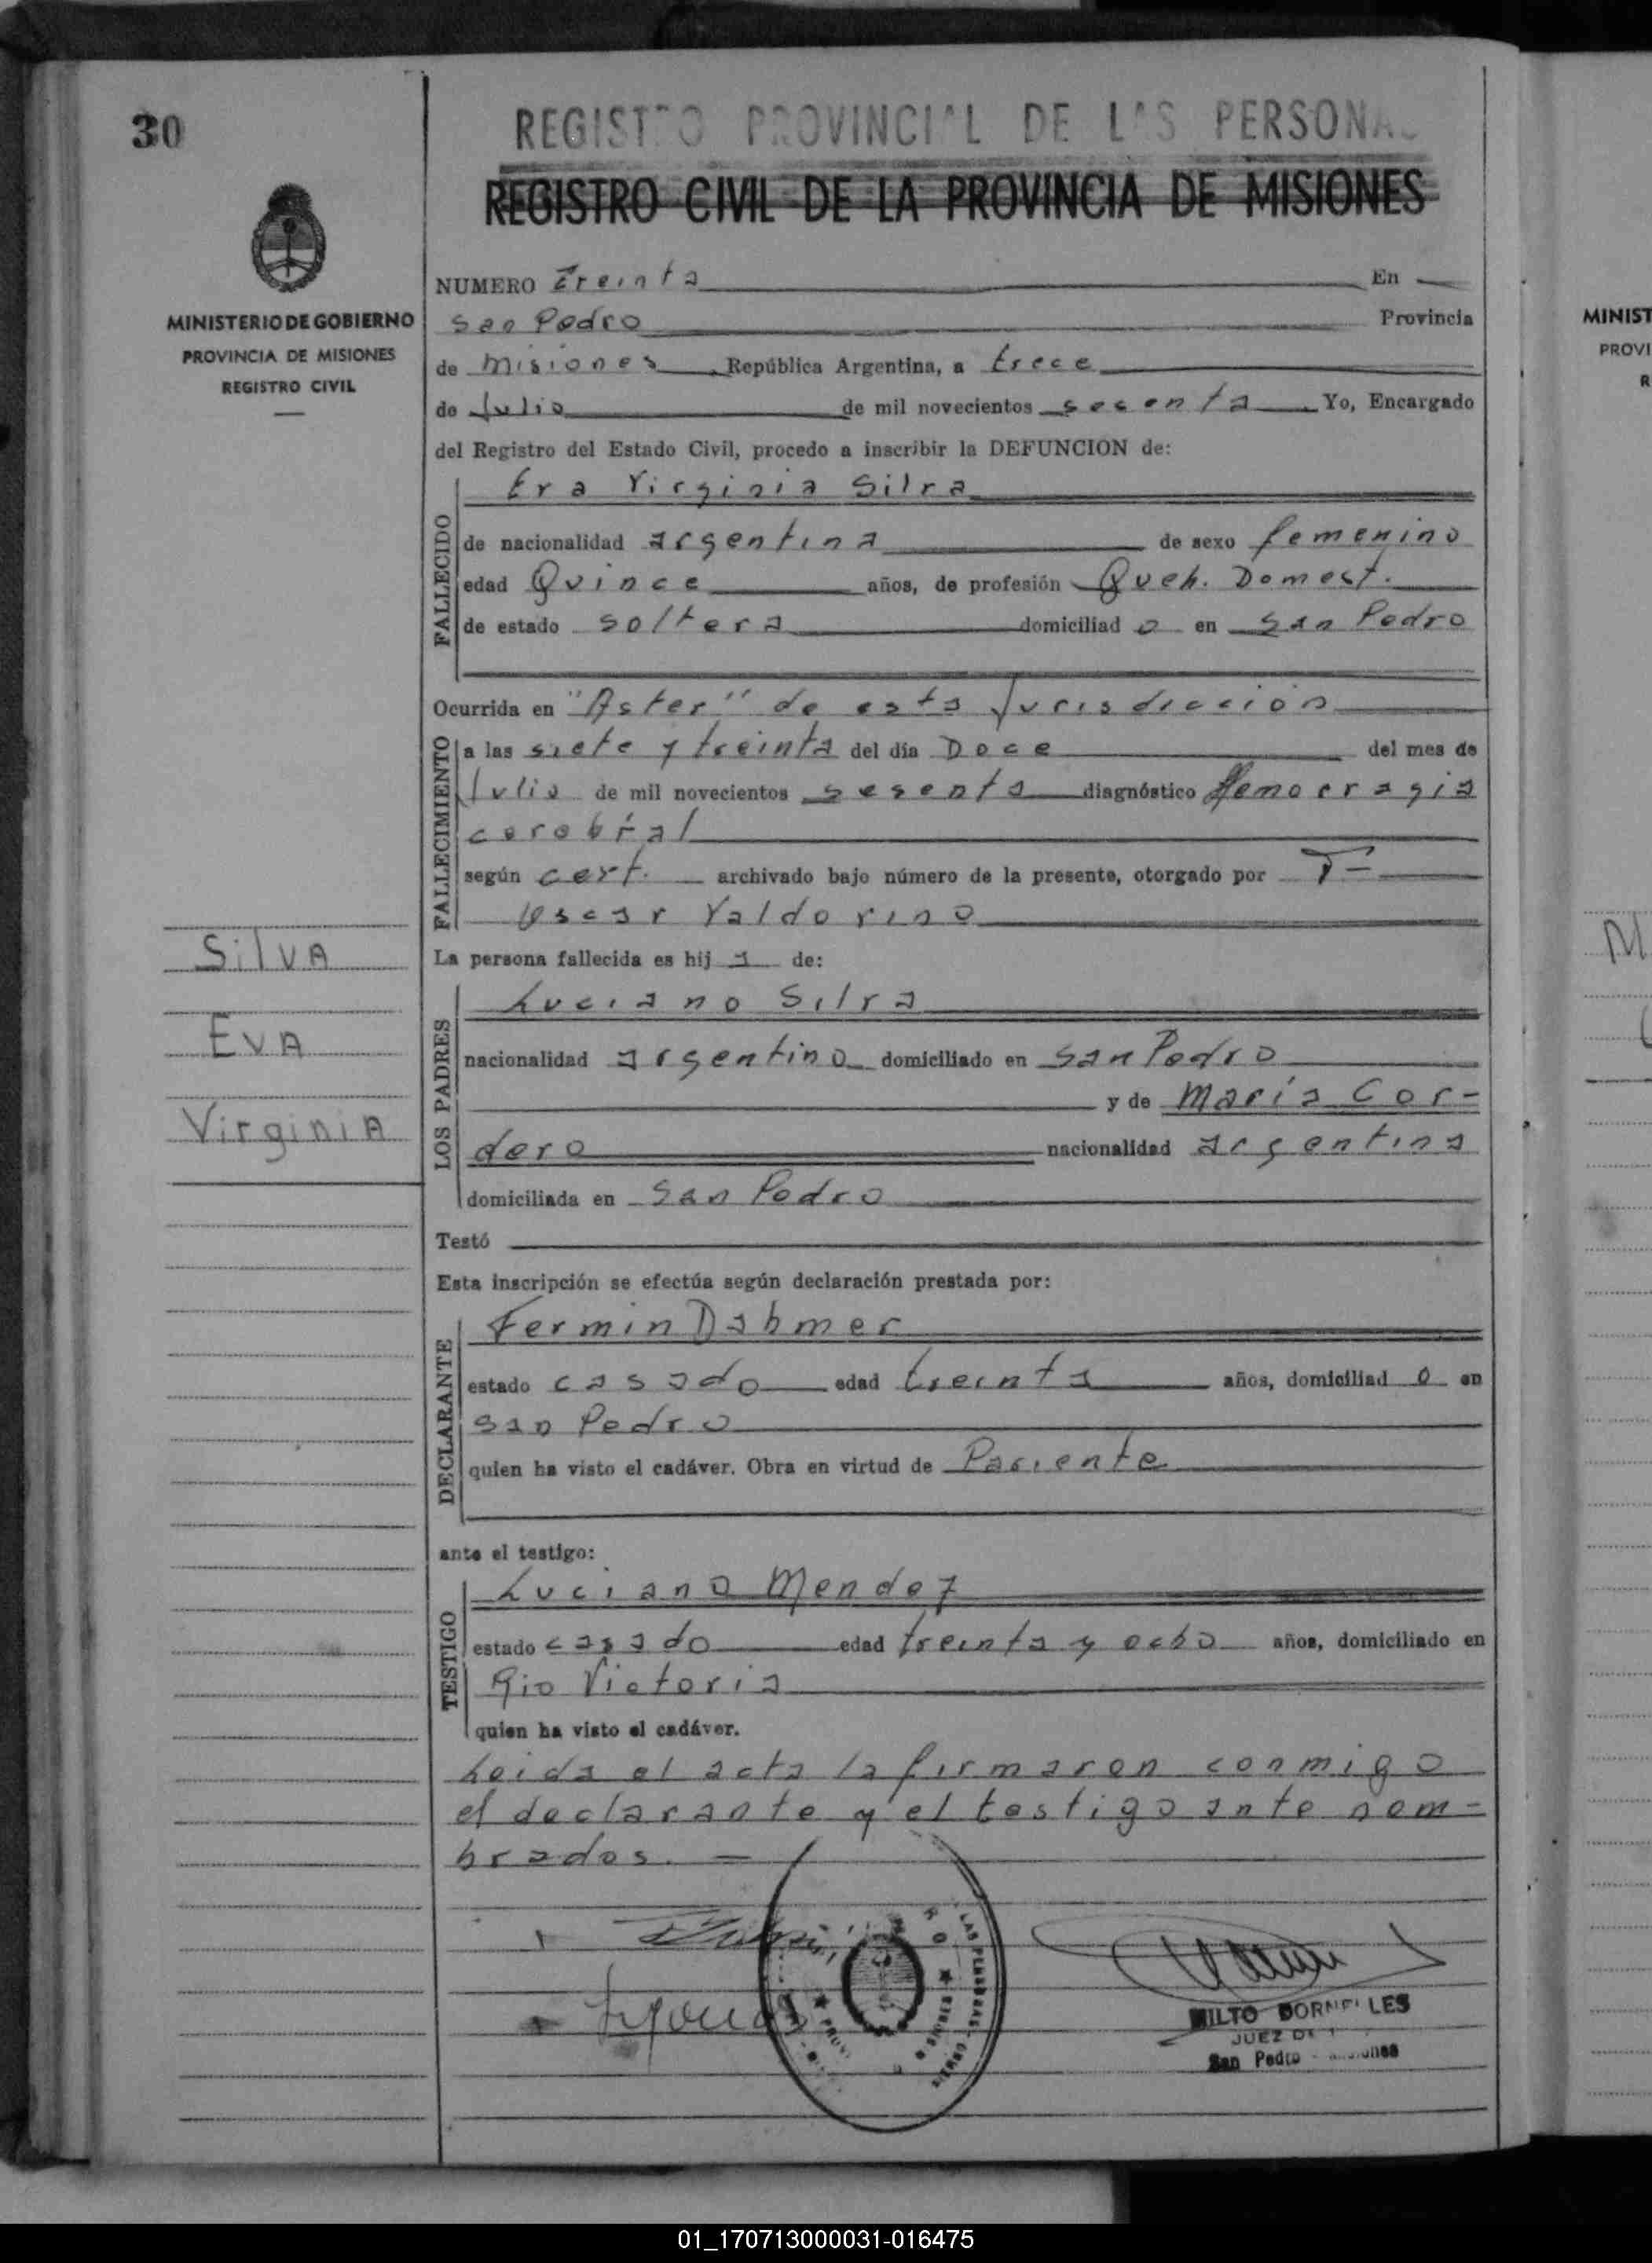 30
REGISTRO PROVINCIAL DE LAS PERSONAS
REGISTRO CIVIL DE LA PROVINCIA DE MISIONES
MINISTERIO DE GOBIERNO
PROVINCIA DE MISIONES
REGISTRO CIVIL
NUMERO Treinta En
San Pedro Provincia
de Misiones República Argentina, a trece
de Julio de mil novecientos sesenta Yo, Encargado
del Registro del Estado Civil, procedo a inscribir la DEFUNCION de:
Eva Virginia Silva
FALLECIDO
de nacionalidad argentina de sexo femenino
edad Quince años, de profesión Queh. Domest.
de estado soltera domiciliad o en San Pedro
Ocurrida en "Aster" de esta Jurisdiccion
FALLECIMIENTO
a las siete y treinta del día Doce del mes de
Julio de mil novecientos sesenta diagnóstico Hemorragia
cerebral
según cert. archivado bajo número de la presente, otorgado por
Oscar Valdovino
Silva
Eva
Virginia
La persona fallecida es hij a de:
LOS PADRES
Luciano Silva
nacionalidad argentino domiciliado en San Pedro
y de María Cor-
dero nacionalidad argentina
domiciliada en San Pedro
Testó
Esta inscripción se efectúa según declaración prestada por:
DECLARANTE
Fermin Dahmer
estado casado edad treinta años, domiciliad o en
San Pedro
quien ha visto el cadáver. Obra en virtud de Pariente
ante el testigo:
TESTIGO
Luciano Mendez
estado casado edad treinta y ocho años, domiciliado en
Rio Victoria
quien ha visto el cadáver.
Leida el acta la firmaron conmigo
el declarante y el testigo ante nom-
brados. —
LAS PERSONAS
MILTO DORNELLES
JUEZ DE
San Pedro - Misiones
MINIST
PROVI
R
M
01_170713000031-016475